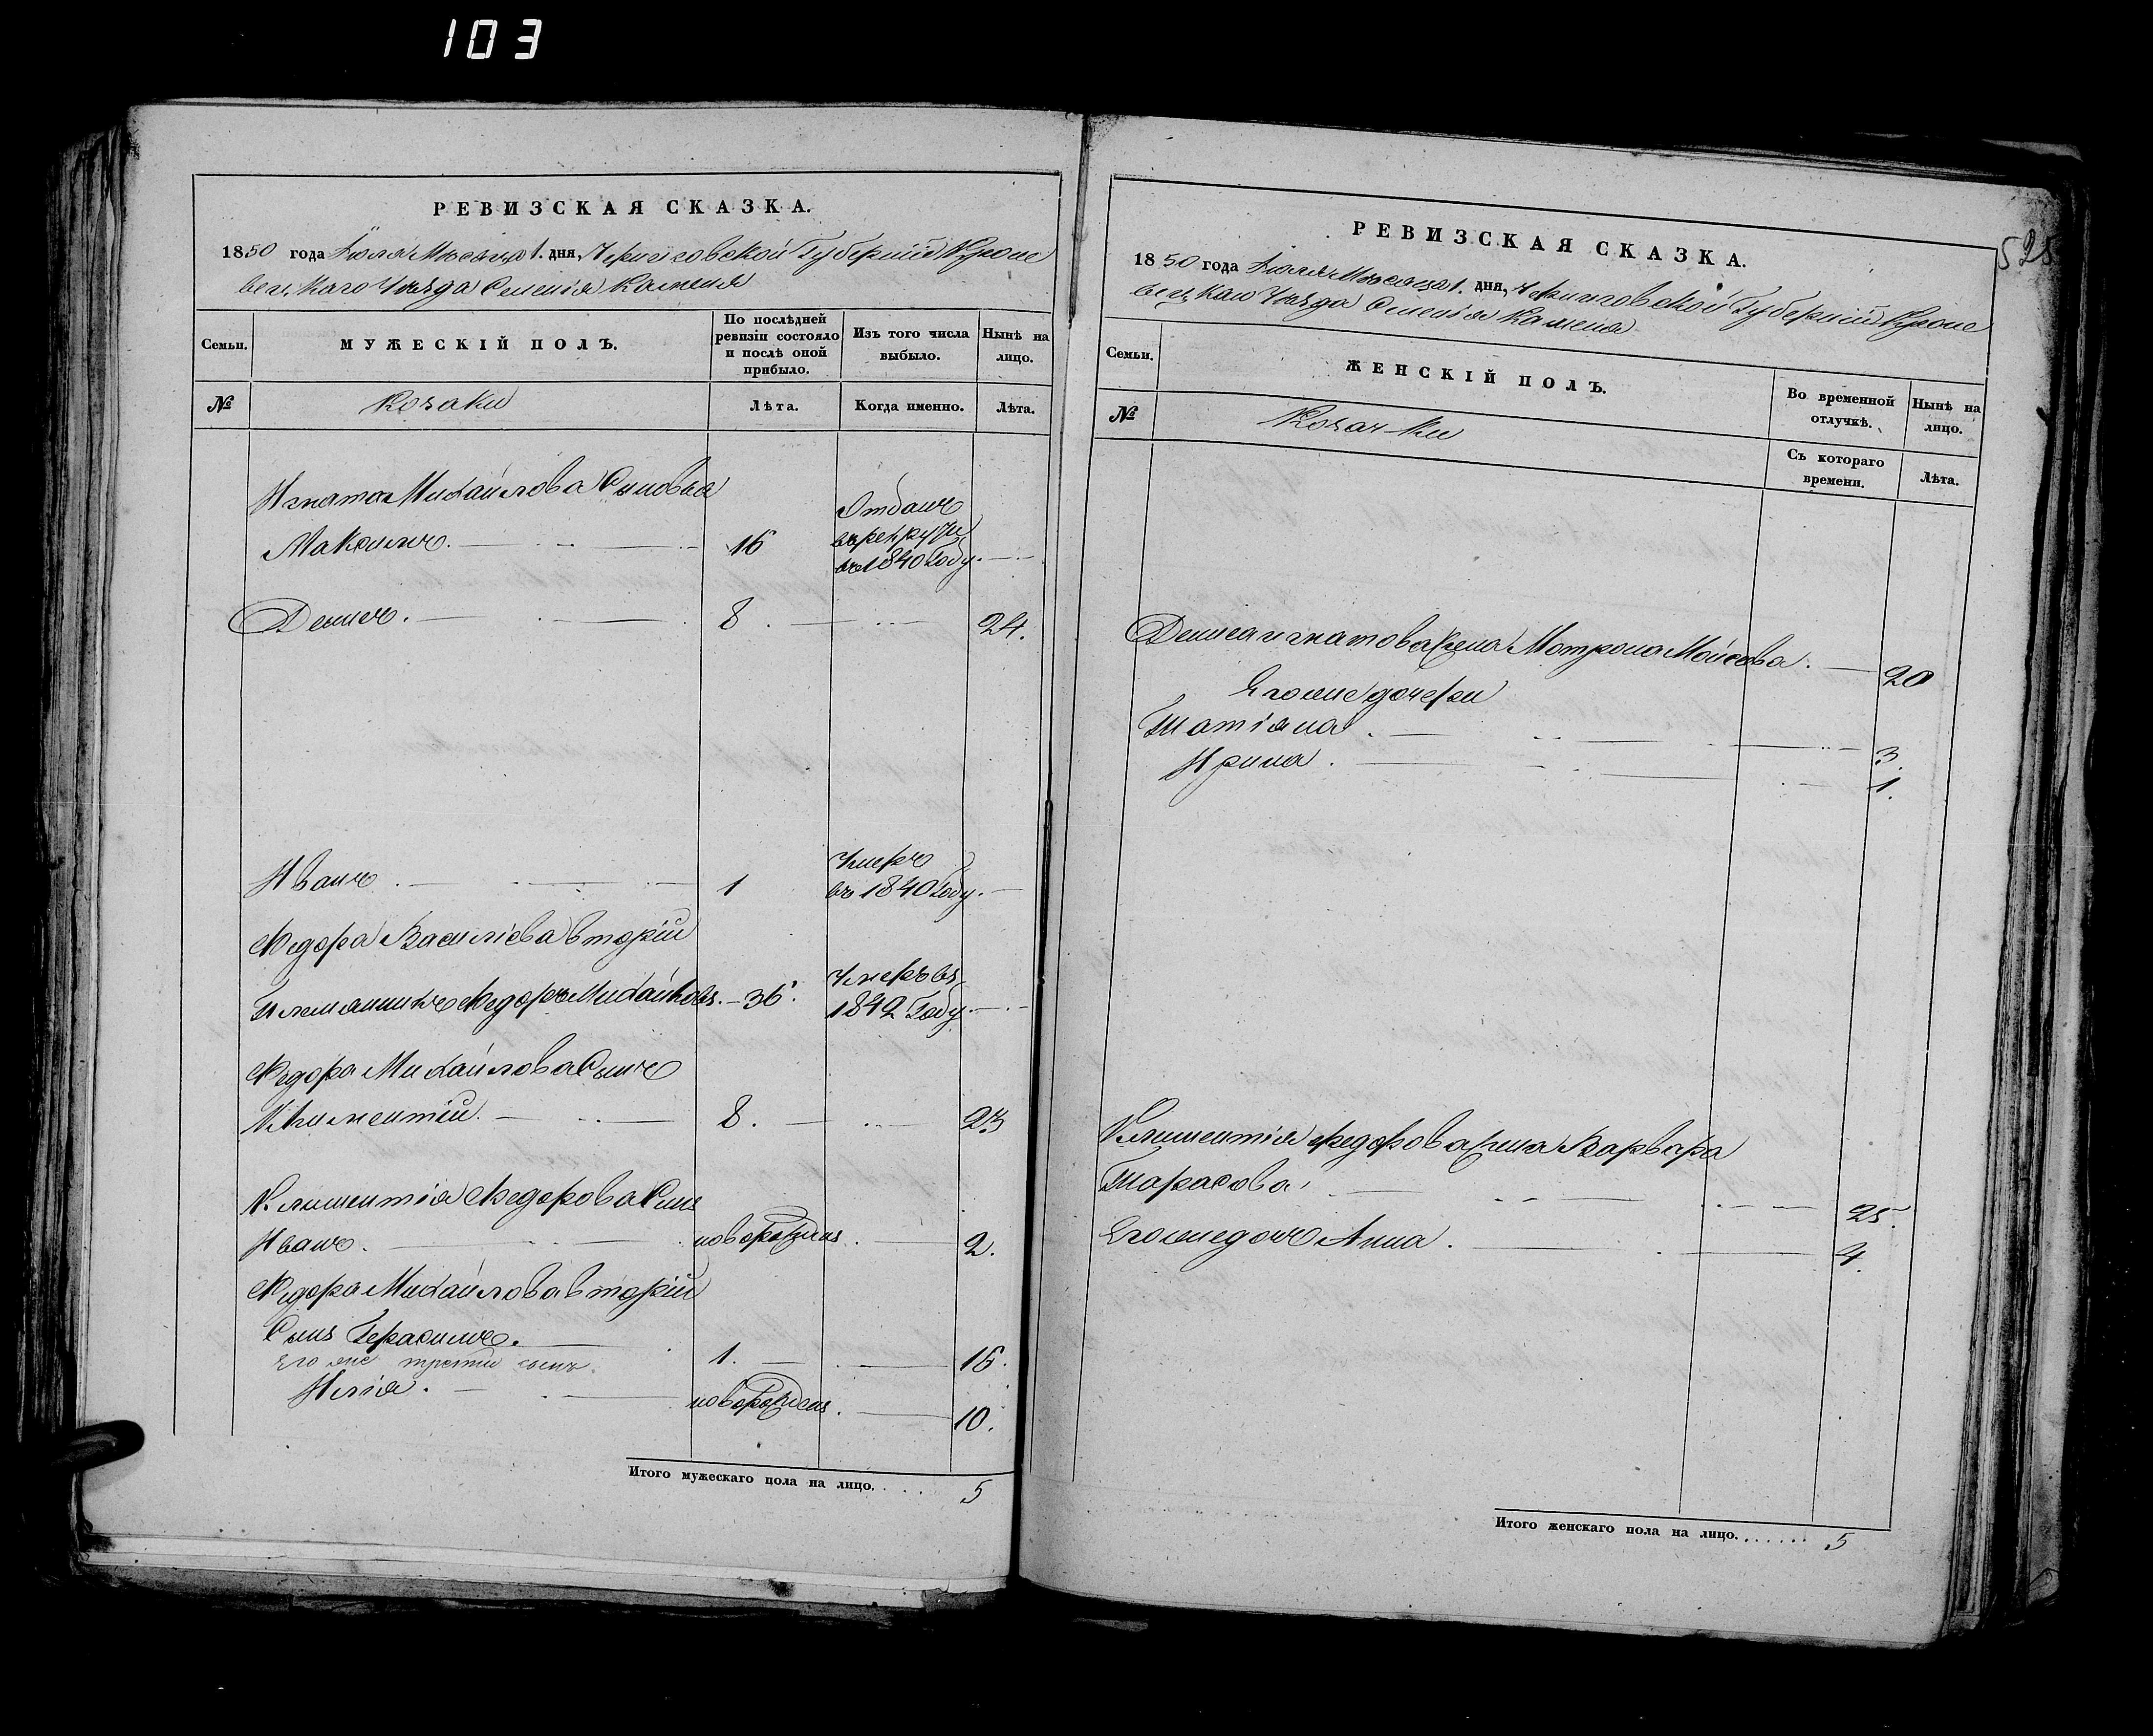 103
РЕВИЗСКАЯ СКАЗКА.
1850 года Июля Месяца 1. дня, Черниговской Губернии Кроле
вецкаго Уезда Селения Каменя
Семьи.
МУЖЕСКІЙ ПОЛЪ.
По послѣдней ревизіи состояло и послѣ оной прибыло.
Изъ того числа выбыло.
Нынѣ на лицо.
№
Козаки
Лѣта.
Когда именно.
Лѣта.
Игната Михайлова Сыновья
Максимъ. 16 Отданъ в рекруты въ 1840 Году.
Денисъ. 8. 24.
Иванъ. 1 Умеръ въ 1840 Году.
Федора Василіева вторій
Племянникъ Федоръ Михайловъ. 36. Умеръ въ 1842 Году.
Федора Михайлова Сынъ
Климентій. 8. 23
Климентія Федорова Сынъ
Иванъ. новорожденъ. 2.
Федора Михайлова вторій
Сынъ Герасимъ. 1. 16.
Его же третий сынъ
Илія. новорожденъ. 10.
Итого мужескаго пола на лицо..... 5
525
РЕВИЗСКАЯ СКАЗКА.
1850 года Июля Месяца 1. дня, Черниговской Губернии Кроле
вецкаго Уезда Селения Каменя
Семьи.
ЖЕНСКІЙ ПОЛЪ.
Во временной отлучкѣ.
Нынѣ на лицо.
№
Козачки
Съ котораго времени.
Лѣта.
Дениса Игнатова жена Мотрона Мойсева. 20
Егоже дочери
Татіана. 3.
Ирина. 1.
Климентія Федорова жена Варвара
Тарасова. 25.
Егоже дочь Анна. 4.
Итого женскаго пола на лицо....... 5